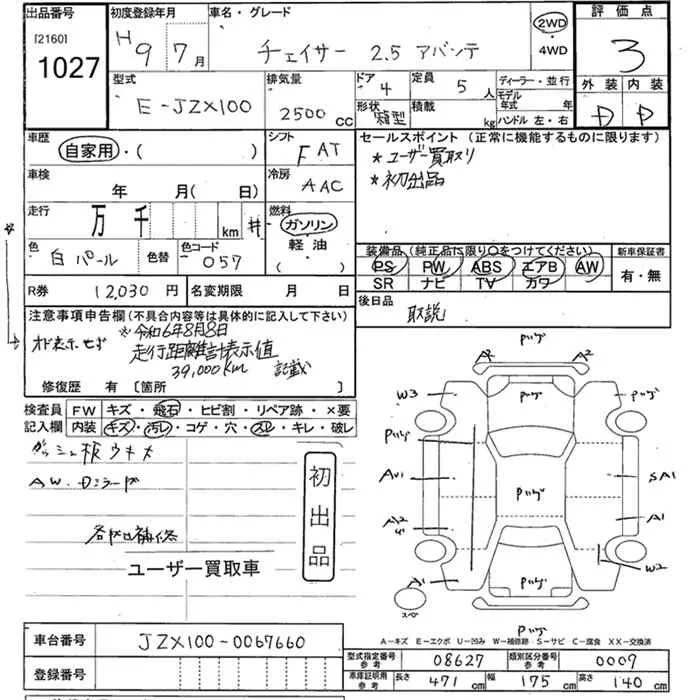 出品番号 初度登録年月 車名・グレード 2WD・4WD 評価点
[2160] H 9年7月 チェイサー 2.5 アバンテ 3
1027
型式 排気量 ドア 4 定員 5人 ディーラー・並行 外装 内装
E-JZX100 2500cc 形状 箱型 積載 kg モデル年式 年 D D
ハンドル 左・右
車歴 シフト セールスポイント (正常に機能するものに限ります)
自家用・( ) FAT *ユーザー買取り
車検 冷房 *初出品
年 月( 日) AAC
走行 燃料
万 千 km # ガソリン
色 色替 色コード 軽油・ 装備品(純正品に限り○をつけてください) 新車保証書
白パール 057 ( ) PS PW ABS エアB AW 有・無
SR ナビ TV カワ
R券 12,030円 名変期限 月 日 後日品
注意事項申告欄(不具合内容等は具体的に記入して下さい) 取説
※令和6年8月8日
オド表示せず 走行距離計表示値
39,000km 記載
修復歴 有 [箇所
検査員 FW キズ・飛石・ヒビ割・リペア跡・×要
記入欄 内装 キズ・汚レ・コゲ・穴・スレ・キレ・破レ
ダッシュ板ウキ大
AW.
各所補修
ユーザー買取車
初出品
A2 A2
W3
SA1
A1
W2
A1
スペ
A-キズ E-エクボ U-凹み W-補修跡 S-サビ C-腐食 XX-交換済
車台番号 JZX100-0067660 型式指定番号 参考 08627 類別区分番号 参考 0009
登録番号 車庫証明用 参考 長さ 471cm 幅 175cm 高さ 140cm